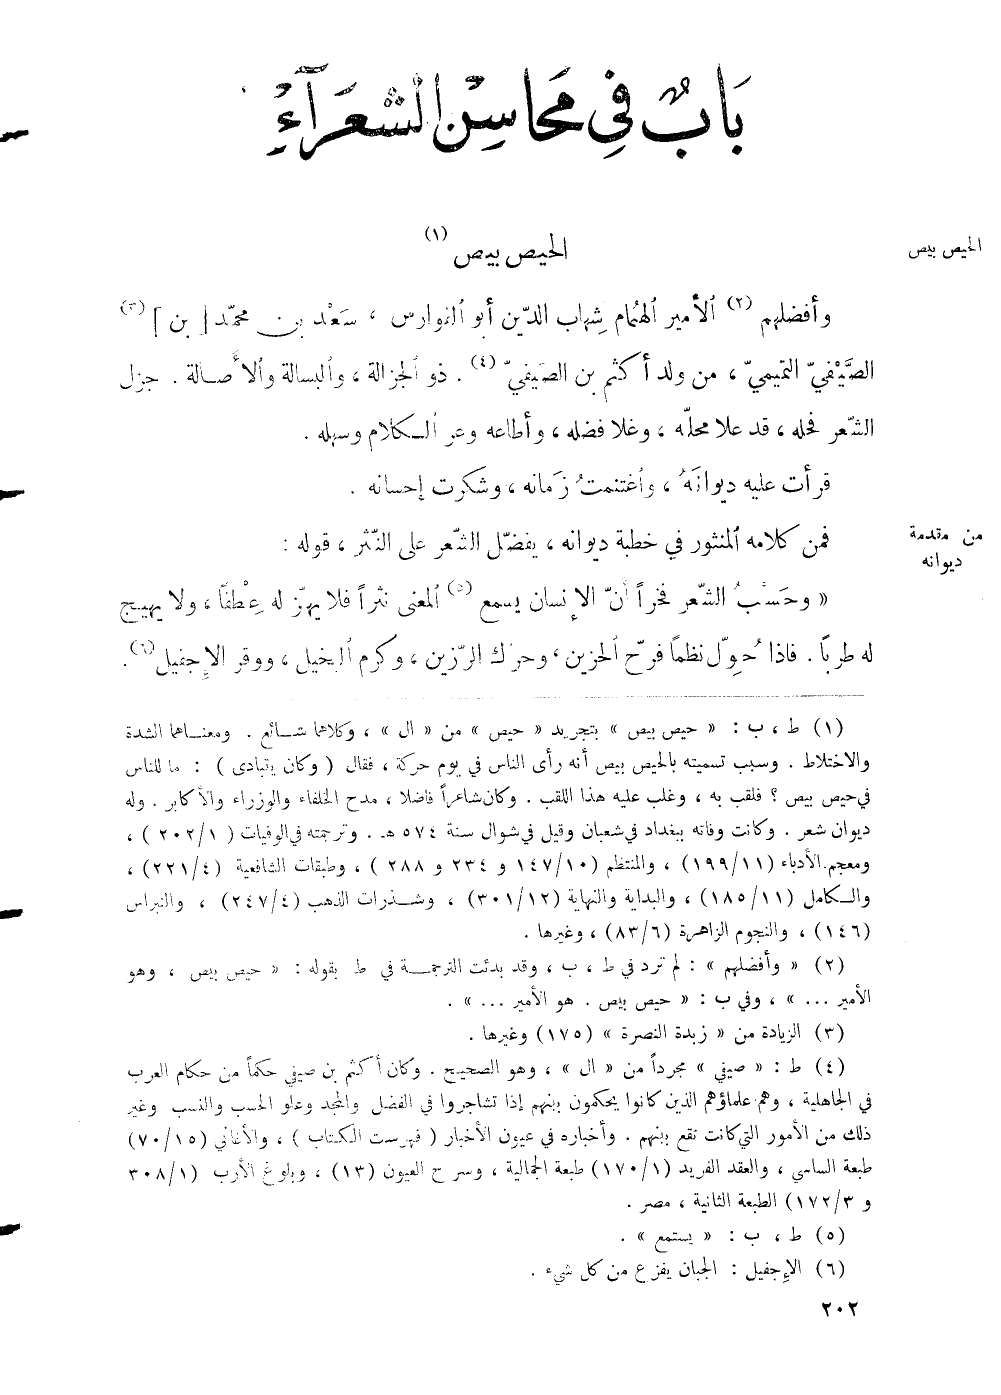 بَابٌ في مَحَاسِن الشعَرَآءِ
الحيص بيص
الحيص بيص (١)
وأفضلهم (٢) الأمير الهمام شِهاب الدّين أبو الفوارس ، سَعْد بن محمّد [ بن ] (٣)
الصَّيْفيّ التميميّ ، من ولد أكثم بن الصَيفيّ (٤) . ذو الجزالة ، والبسالة والأصالة . جزل
الشّعر فحله ، قد علا محلّه ، وغلا فضله ، وأطاعه وعر الكلام وسهله .
قرأت عليه ديوانَهُ ، واغتنمتُ زمانه ، وشكرت إحسانه .
من مقدمة
ديوانه
فمن كلامه المنثور في خطبة ديوانه ، يفضّل الشّعر على النّثر ، قوله :
« وحَسْبُ الشّعر فخراً أنّ الإنسان يسمع (٥) المعنى نثراً فلا يهزّ له عِطْفاً ، ولا يهيج
له طرباً . فاذا حُوِّل نظماً فرّح الحزين ، وحرّك الرّزين ، وكرم البخيل ، ووقر الإجفيل (٦) .
(١) ط ، ب : « حيص بيص » بتجريد « حيص » من « ال » ، وكلاهما شائع . ومعناهما الشدة
والاختلاط . وسبب تسميته بالحيص بيص أنه رأى الناس في يوم حركة ، فقال ( وكان يتبادى ) : ما للناس
في حيص بيص ؟ فلقب به ، وغلب عليه هذا اللقب . وكان شاعراً فاضلا ، مدح الخلفاء والوزراء والأكابر . وله
ديوان شعر . وكانت وفاته ببغداد في شعبان وقيل في شوال سنة ٥٧٤ هـ . وترجمته في الوفيات ( ١/٢٠٢ ) ،
ومعجم الأدباء (١١/١٩٩) ، والمنتظم (١٠/١٤٧ و ٢٣٤ و ٢٨٨ ) ، وطبقات الشافعية (٤/٢٢١) ،
والكامل (١١/١٨٥) ، والبداية والنهاية (١٢/٣٠١) ، وشذرات الذهب (٤/٢٤٧) ، والنبراس
(١٤٦) ، والنجوم الزاهرة (٦/٨٣) ، وغيرها .
(٢) « وأفضلهم » : لم ترد في ط ، ب ، وقد بدئت الترجمة في ط بقوله : « حيص بيص ، وهو
الأمير ... » ، وفي ب : « حيص بيص . هو الأمير ... » .
(٣) الزيادة من « زبدة النصرة » (١٧٥) وغيرها .
(٤) ط : « صيفي » مجرداً من « ال » ، وهو الصحيح . وكان أكثم بن صيفي حكماً من حكام العرب
في الجاهلية ، وهم علماؤهم الذين كانوا يحكمون بينهم إذا تشاجروا في الفضل والمجد وعلو الحسب والنسب وغير
ذلك من الأمور التي كانت تقع بينهم . وأخباره في عيون الأخبار ( فهرست الكتاب ) ، والأغاني (١٥/٧٠)
طبعة الساسي ، والعقد الفريد (١/١٧٠) طبعة الجمالية ، وسرح العيون (١٣) ، وبلوغ الأرب (١/٣٠٨
و ٣/١٧٢) الطبعة الثانية ، مصر .
(٥) ط ، ب : « يستمع » .
(٦) الإجفيل : الجبان يفزع من كل شيء .
٢٠٢